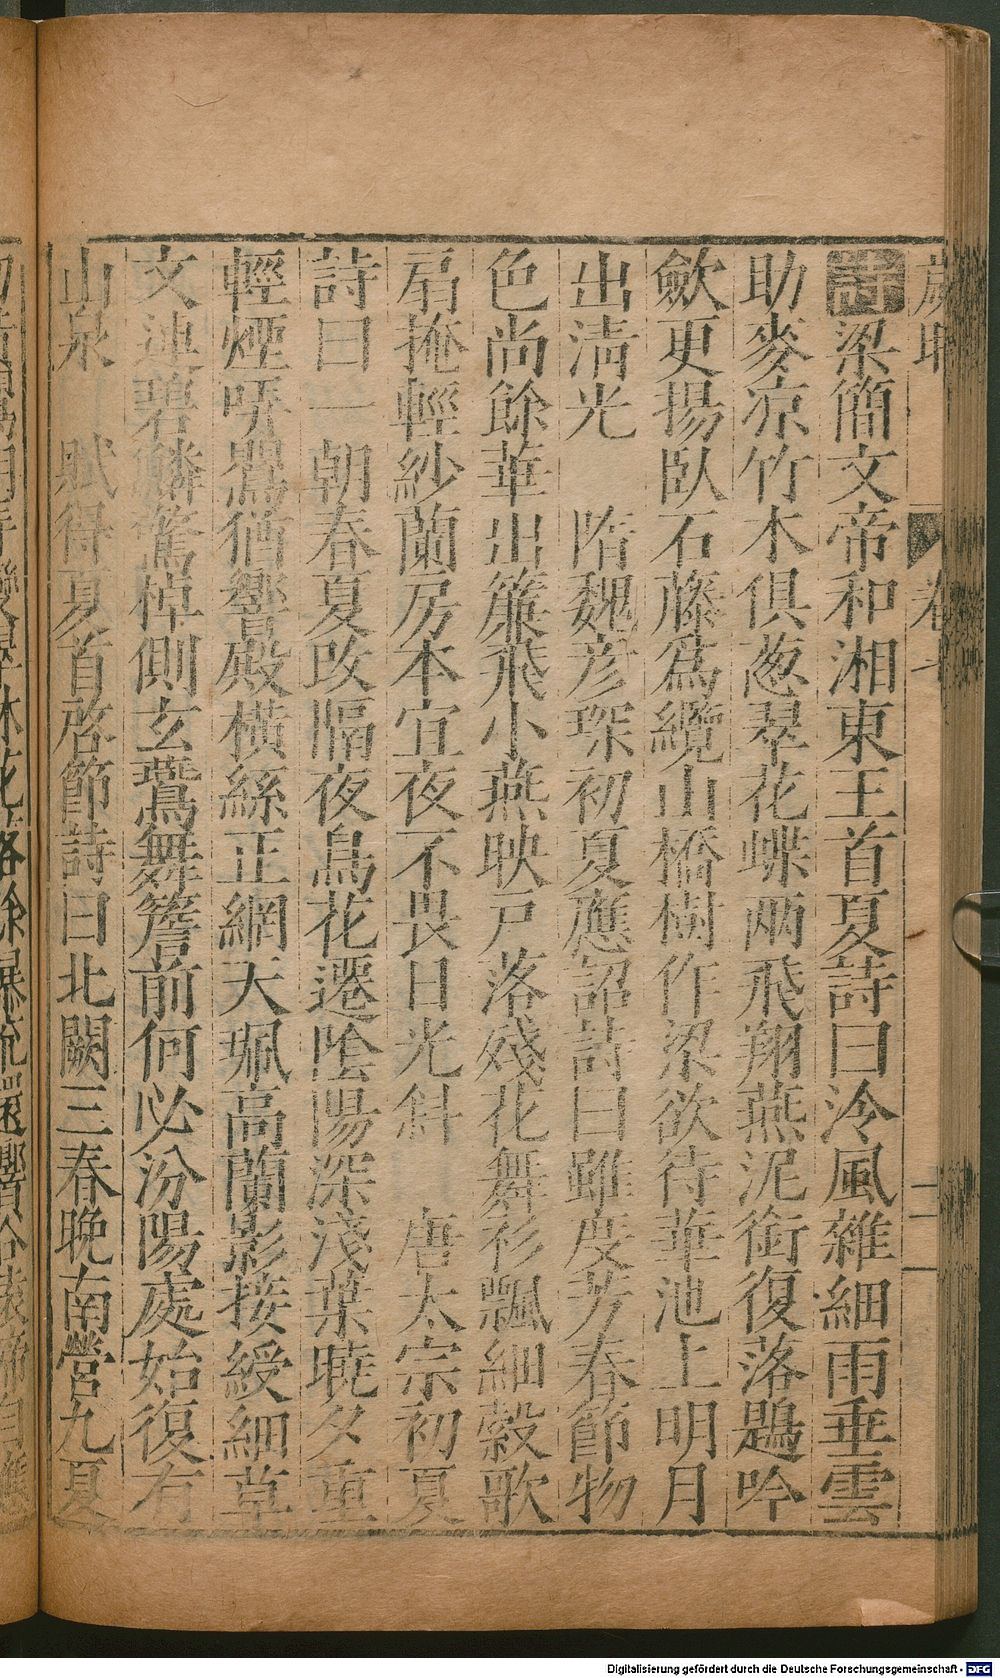 歲時 卷十 二
詩梁簡文帝和湘東王首夏詩曰泠風雜細雨垂雲
助麥凉竹木俱葱翠花蝶兩飛翔燕泥銜復落鶗吟
歛更揚臥石藤爲纜山橋樹作梁欲待華池上明月
出淸光 隋魏彦琛初夏應詔詩曰雖度芳春節物
色尚餘華出簾飛小燕映戸落殘花舞衫飄細縠歌
扇掩輕紗蘭房本宜夜不畏日光斜 唐太宗初夏
詩曰一朝春夏改隔夜鳥花遷陰陽深淺葉曉夕重
輕煙哢鶯猶響殿橫絲正網天珮高蘭影接綬細草
文連碧鱗驚棹側玄鷰舞簷前何必汾陽處始復有
山泉 賦得夏首啓節詩曰北闕三春晚南營九夏
Digitalisierung gefördert durch die Deutsche Forschungsgemeinschaft - DFG